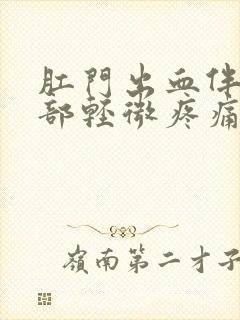 肛門出血伴
部輕微疼痛
嶺南第二才子